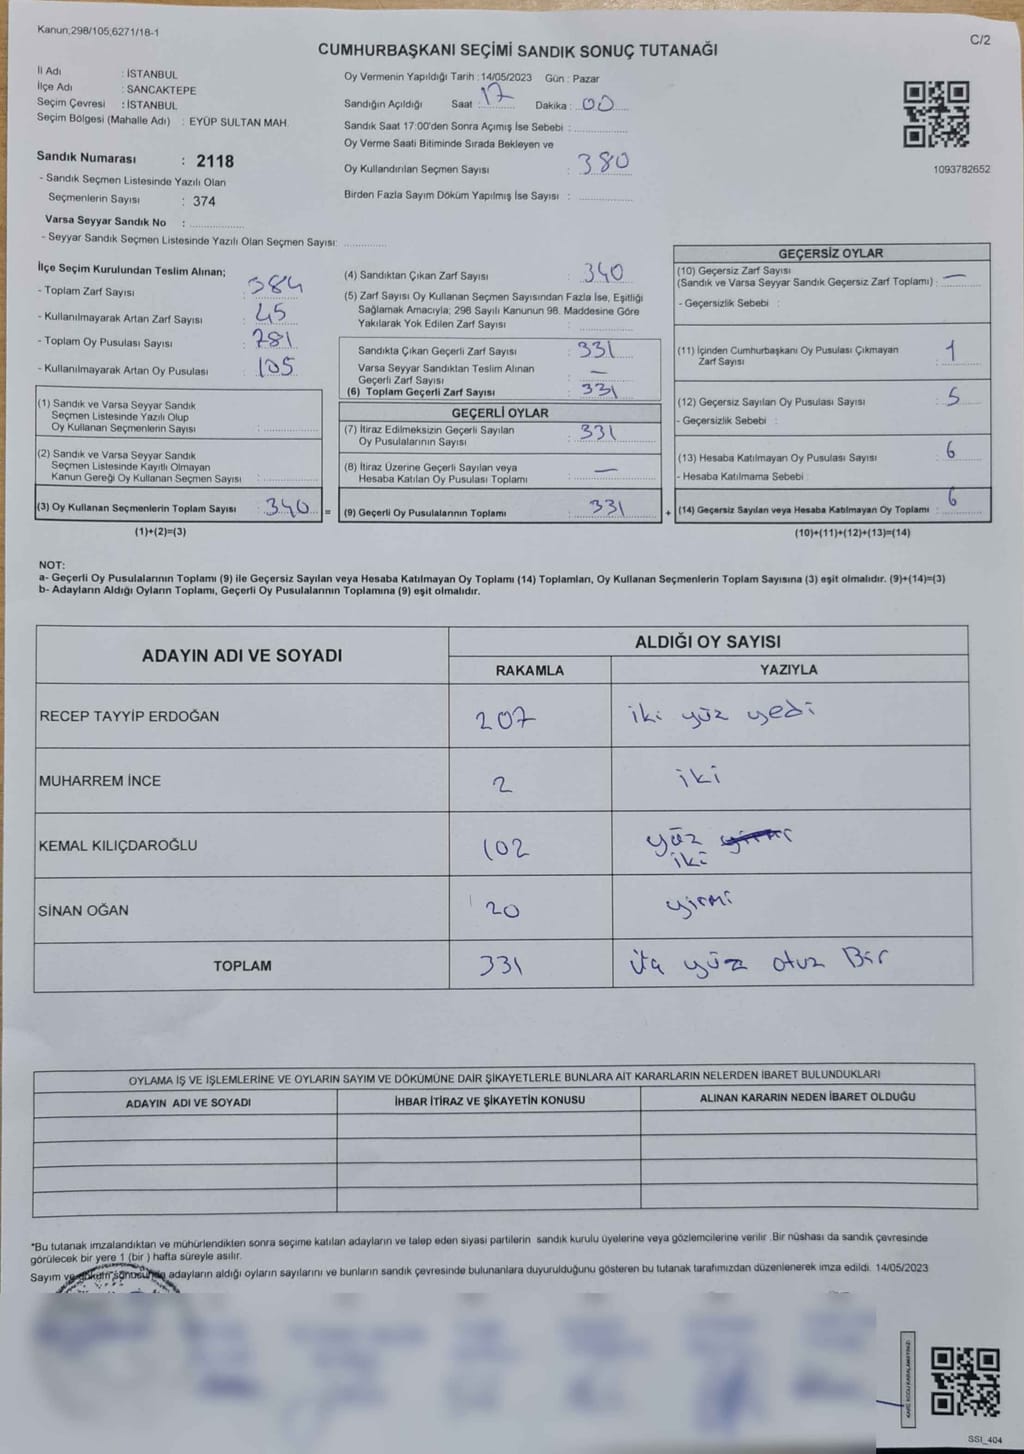 Kanun,298/105,6271/18-1
C/2
CUMHURBAŞKANI SEÇİMİ SANDIK SONUÇ TUTANAĞI
İl Adı : İSTANBUL
İlçe Adı : SANCAKTEPE
Seçim Çevresi : İSTANBUL
Seçim Bölgesi (Mahalle Adı) : EYÜP SULTAN MAH.
Sandık Numarası : 2118
- Sandık Seçmen Listesinde Yazılı Olan
Seçmenlerin Sayısı : 374
Varsa Seyyar Sandık No : ..................
- Seyyar Sandık Seçmen Listesinde Yazılı Olan Seçmen Sayısı: .............
Oy Vermenin Yapıldığı Tarih : 14/05/2023 Gün : Pazar
Sandığın Açıldığı Saat : 17 Dakika : 00
Sandık Saat 17:00'den Sonra Açımış İse Sebebi : ..................
Oy Verme Saati Bitiminde Sırada Bekleyen ve
Oy Kullandırılan Seçmen Sayısı : 380
Birden Fazla Sayım Döküm Yapılmış İse Sayısı : ..................
1093782652
İlçe Seçim Kurulundan Teslim Alınan;
- Toplam Zarf Sayısı : 384
- Kullanılmayarak Artan Zarf Sayısı : 45
- Toplam Oy Pusulası Sayısı : 781
- Kullanılmayarak Artan Oy Pusulası : 105
(1) Sandık ve Varsa Seyyar Sandık
Seçmen Listesinde Yazılı Olup
Oy Kullanan Seçmenlerin Sayısı : ..................
(2) Sandık ve Varsa Seyyar Sandık
Seçmen Listesinde Kayıtlı Olmayan
Kanun Gereği Oy Kullanan Seçmen Sayısı : ..................
(3) Oy Kullanan Seçmenlerin Toplam Sayısı : 340 =
(1)+(2)=(3)
(4) Sandıktan Çıkan Zarf Sayısı : 340
(5) Zarf Sayısı Oy Kullanan Seçmen Sayısından Fazla İse, Eşitliği
Sağlamak Amacıyla; 298 Sayılı Kanunun 98. Maddesine Göre
Yakılarak Yok Edilen Zarf Sayısı : ..................
Sandıkta Çıkan Geçerli Zarf Sayısı : 331
Varsa Seyyar Sandıktan Teslim Alınan
Geçerli Zarf Sayısı : —
(6) Toplam Geçerli Zarf Sayısı : 331
GEÇERLİ OYLAR
(7) İtiraz Edilmeksizin Geçerli Sayılan
Oy Pusulalarının Sayısı : 331
(8) İtiraz Üzerine Geçerli Sayılan veya
Hesaba Katılan Oy Pusulası Toplamı : —
(9) Geçerli Oy Pusulalarının Toplamı : 331 +
GEÇERSİZ OYLAR
(10) Geçersiz Zarf Sayısı
(Sandık ve Varsa Seyyar Sandık Geçersiz Zarf Toplamı) : —
- Geçersizlik Sebebi :
(11) İçinden Cumhurbaşkanı Oy Pusulası Çıkmayan
Zarf Sayısı : 1
(12) Geçersiz Sayılan Oy Pusulası Sayısı : 5
- Geçersizlik Sebebi :
(13) Hesaba Katılmayan Oy Pusulası Sayısı : 6
- Hesaba Katılmama Sebebi :
(14) Geçersiz Sayılan veya Hesaba Katılmayan Oy Toplamı : 6
(10)+(11)+(12)+(13)=(14)
NOT:
a- Geçerli Oy Pusulalarının Toplamı (9) ile Geçersiz Sayılan veya Hesaba Katılmayan Oy Toplamı (14) Toplamları, Oy Kullanan Seçmenlerin Toplam Sayısına (3) eşit olmalıdır. (9)+(14)=(3)
b- Adayların Aldığı Oyların Toplamı, Geçerli Oy Pusulalarının Toplamına (9) eşit olmalıdır.
ADAYIN ADI VE SOYADI
ALDIĞI OY SAYISI
RAKAMLA YAZIYLA
RECEP TAYYİP ERDOĞAN 207 iki yüz yedi
MUHARREM İNCE 2 iki
KEMAL KILIÇDAROĞLU 102 yüz
iki
SİNAN OĞAN 20 yirmi
TOPLAM 331 üç yüz otuz Bir
OYLAMA İŞ VE İŞLEMLERİNE VE OYLARIN SAYIM VE DÖKÜMÜNE DAİR ŞİKAYETLERLE BUNLARA AİT KARARLARIN NELERDEN İBARET BULUNDUKLARI
ADAYIN ADI VE SOYADI İHBAR İTİRAZ VE ŞİKAYETİN KONUSU ALINAN KARARIN NEDEN İBARET OLDUĞU
*Bu tutanak imzalandıktan ve mühürlendikten sonra seçime katılan adayların ve talep eden siyasi partilerin sandık kurulu üyelerine veya gözlemcilerine verilir .Bir nüshası da sandık çevresinde
görülecek bir yere 1 (bir ) hafta süreyle asılır.
Sayım ve döküm sonucunda adayların aldığı oyların sayılarını ve bunların sandık çevresinde bulunanlara duyurulduğunu gösteren bu tutanak tarafımızdan düzenlenerek imza edildi. 14/05/2023
SSI_404